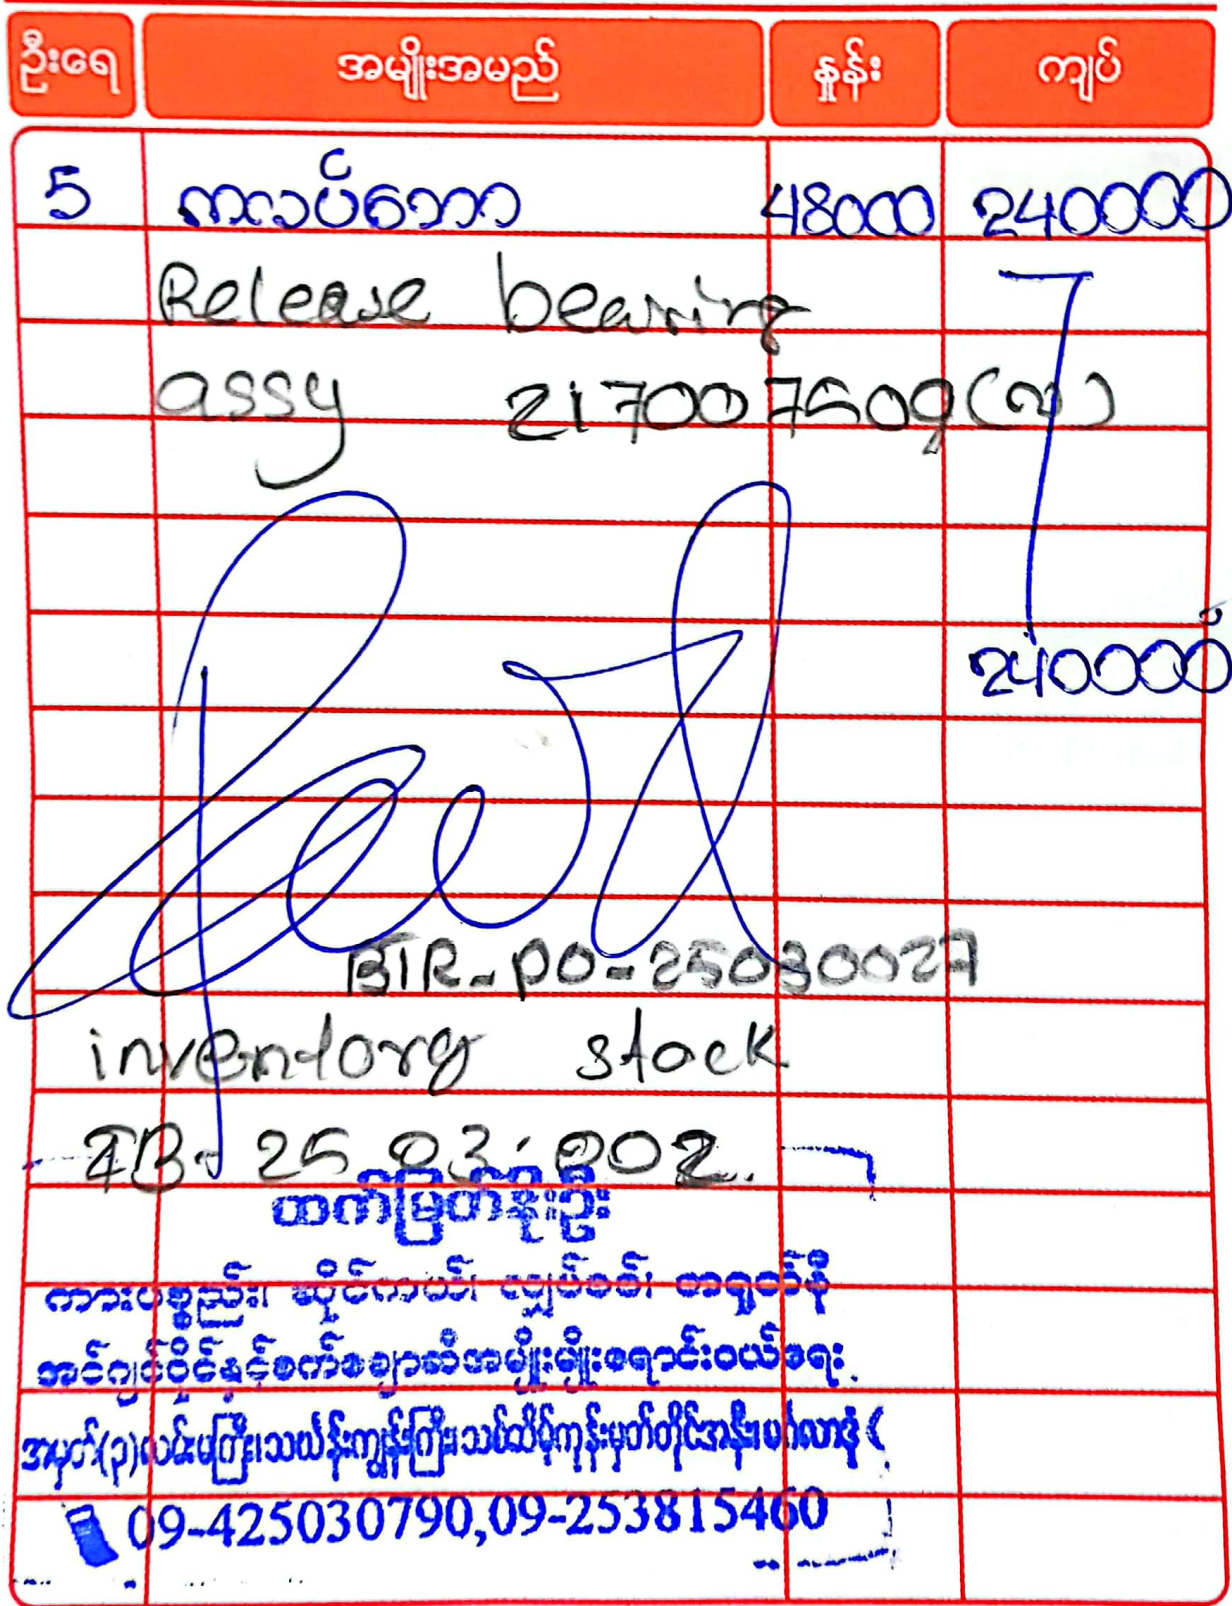 ဦးရေ အမျိုးအမည် နှုန်း ကျပ်
5 ကလပ်ဘော 48000 240000
Release bearing
assy 2170075009(လ)
240000
BTR-PO-25030027
inventory stock
IB-25 03.002.
ထက်မြတ်စိုးဦး
ကားပစ္စည်း၊ ဆိုင်ကယ်၊ လျှပ်စစ်၊
အင်ဂျင်ဝိုင်နှင့်စက်ချောဆီအမျိုးမျိုးရောင်းဝယ်ရေး
အမှတ်(၃)လမ်းမကြီး၊သယ်န်းကျွန်းကြီး၊သစ်ဆိပ်ကုန်းမှတ်တိုင်အနီး၊မင်္ဂလာဒုံ
09-425030790,09-253815460